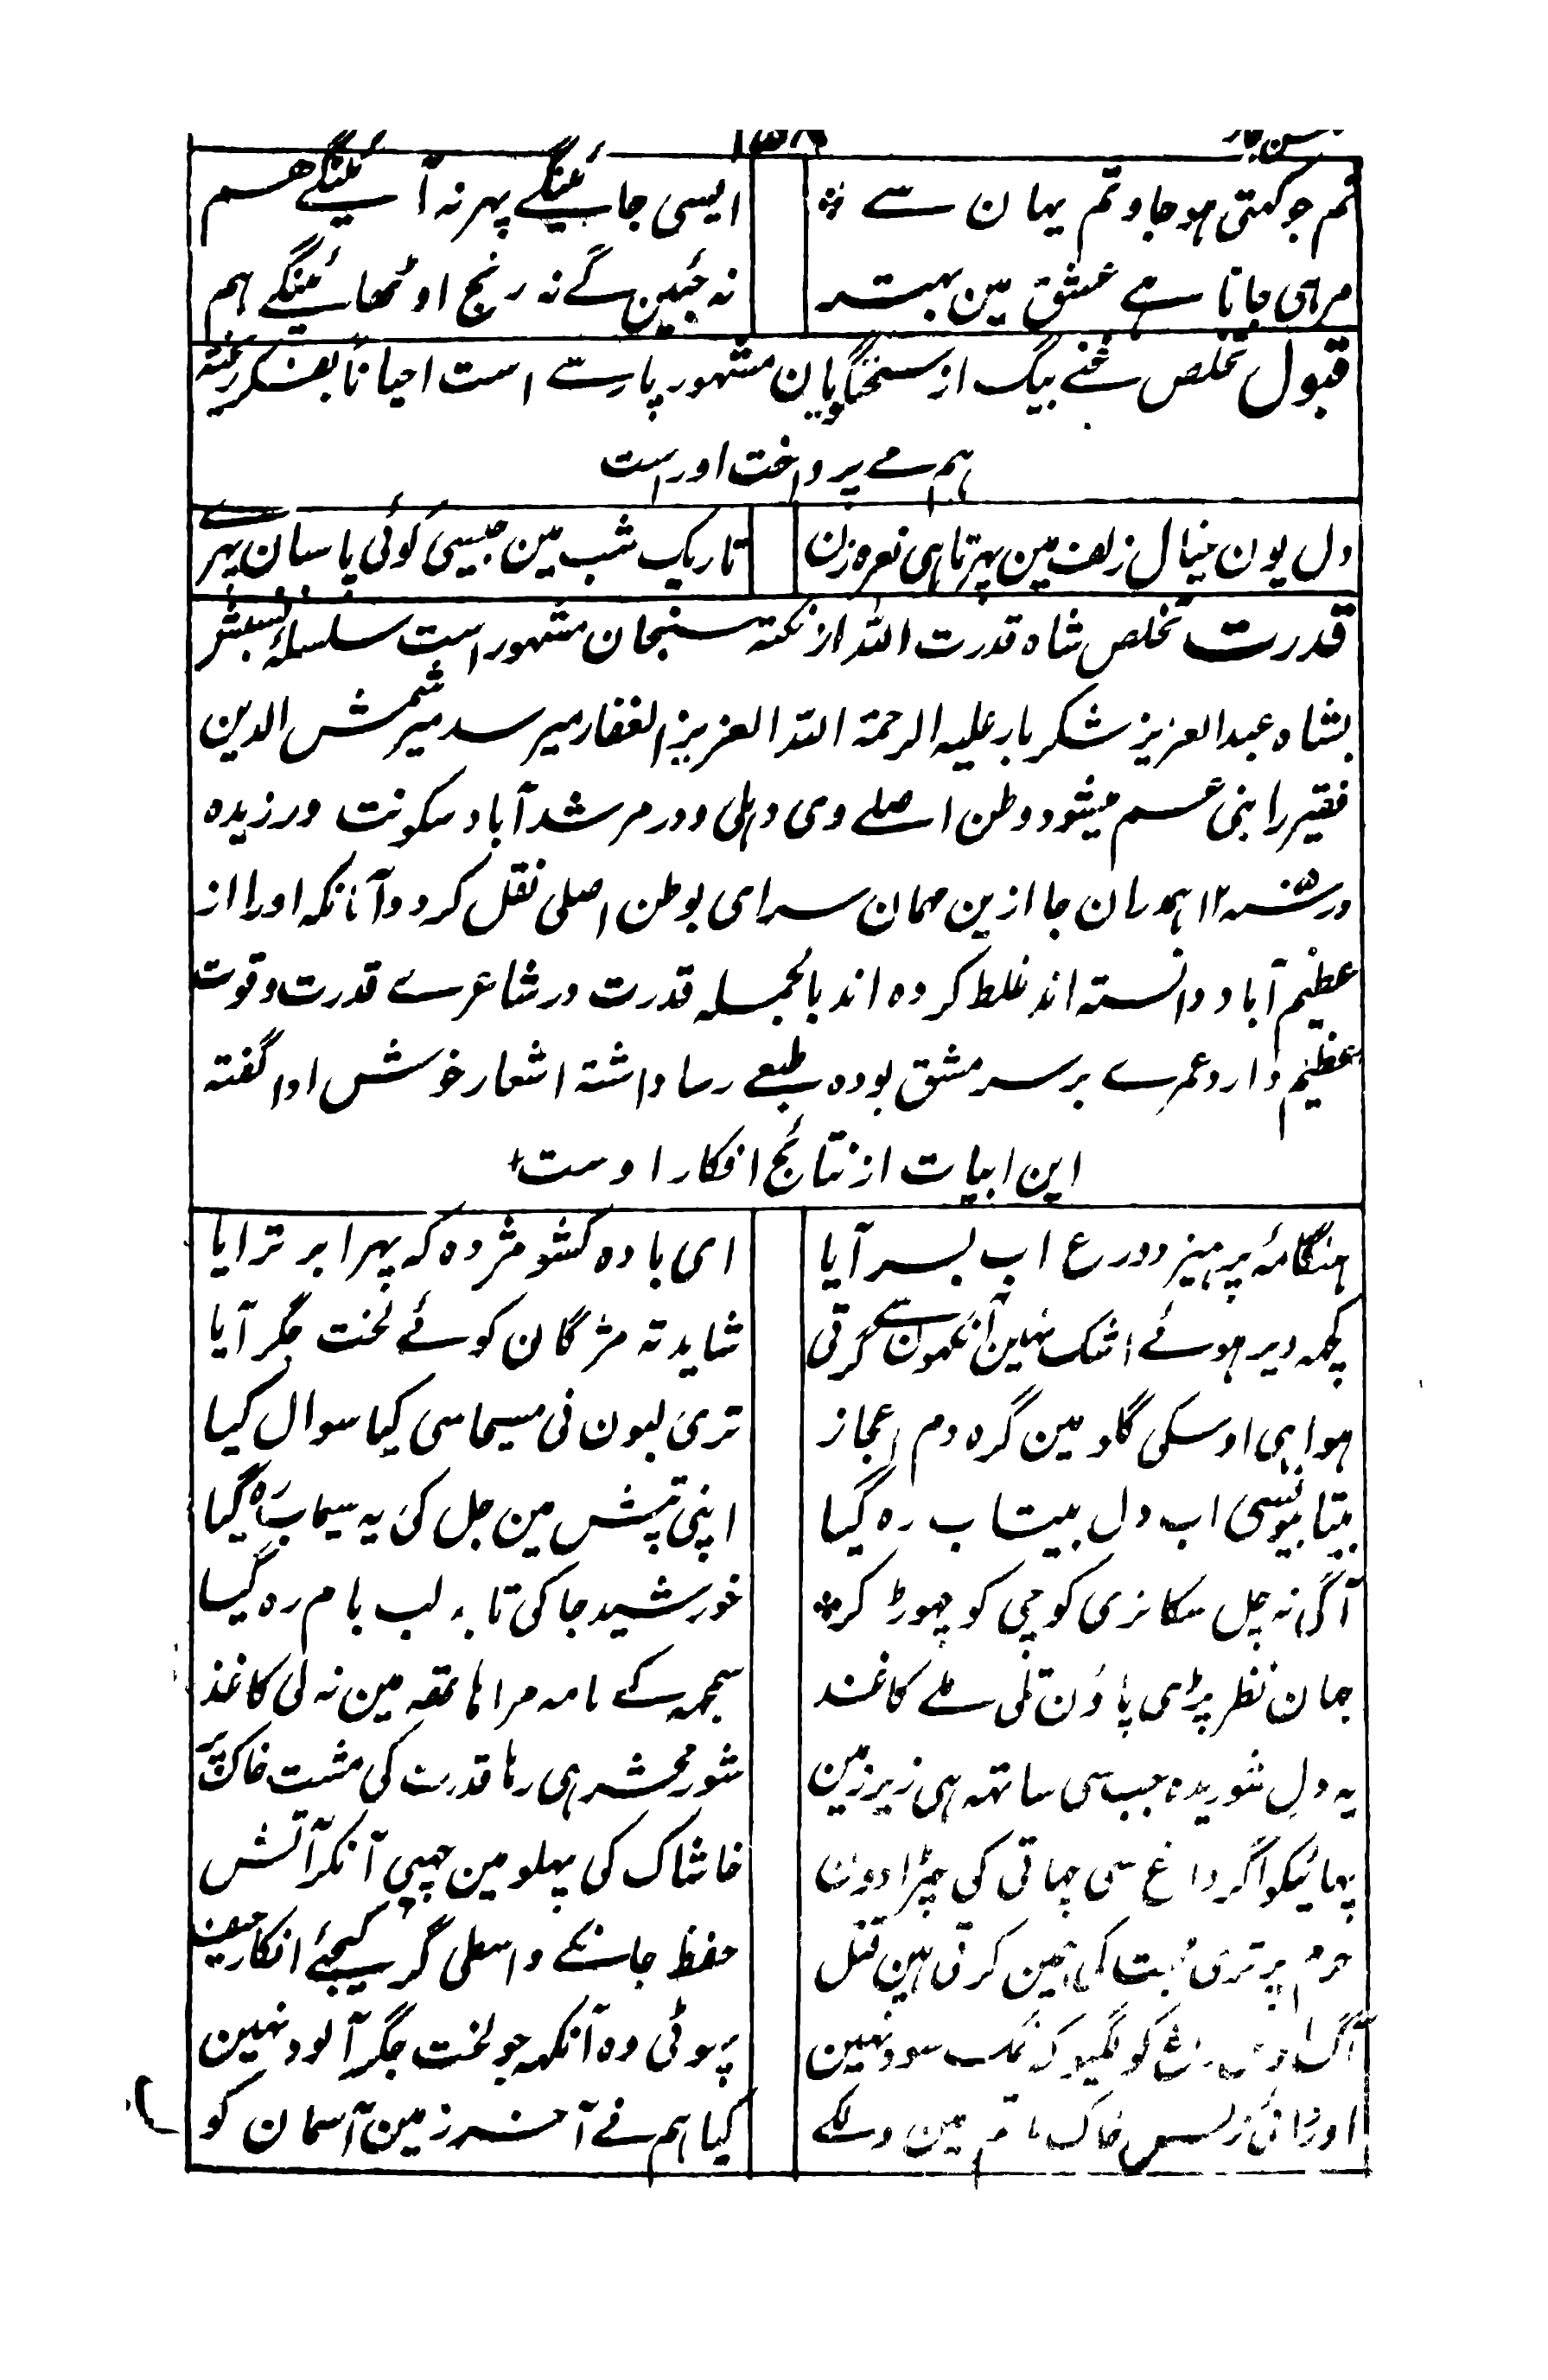 تم جو کہتی ہو جاو تم یہان سے ٭ ایسی جائینگے پھر نہ آئینگے ھم
مرہی جانا ہے عشق مین بہتر نہ جئین گے نہ رنج اوٹھائینگے ہم
قبول تخلص غنے بیگ از سخنگویان مشہور پارسے است احیاناً بفکر ریختہ
ہم مے پرداخت اوراست
دل یون خیال زلف مین پہرتا ہی نعرہ زن تاریک شب مین جیسی کوئی پاسان پہرے
قدرت تخلص شاہ قدرت اللہ از نکتہ سنجان مشہور است سلسلۂ نسبش
بشاہ عبدالعزیز شکر بار علیہ الرحمۃ اللہ العزیز الغفار میرسد میر شمش الدین
فقیر را بنی عسم میشود وطن اصلے وی دہلی و در مرشدآباد سکونت ورزیدہ
ہمدران جا ازین مہمان سرای بوطن اصلی نقل کرد و آنانکہ اورا از
عظیم آباد دانستہ اند غلط کردہ اند بالجملہ قدرت در شاعرے قدرت و قوت
عظیم دارد عمرے بر سر مشق بودہ طبعے رسا داشتہ اشعار خوش ادا گفتہ
این ابیات از نتائج افکار اوست
ہنگامۂ پرہیز و ورع اب بسر آیا ای بادہ کشو مژدہ کہ پہر ابر تر ایا
کچہ دیر ہوئے اشک نہین آنکہون سے گرتی شاید تہ مژگان کوئے لخت جگر آیا
ہوا ہی اوسکی گلو مین گرہ دم اعجاز تری لبون نی مسیحا سی کیا سوال کیا
بیتابیوسی اب دل بیتاب رہ گیا اپنی تپش مین جل کی یہ سیماب رہ گیا
آگی نہ چل سکا تری کوچی کو چہوڑ کر٭ خورشید جا کی تا بہ لب بام رہ گیا
جہان نظر پڑی پاؤن تلی ملے کاغذ سمجہہ کے نامہ مرا ہاتھہ مین نہ لی کاغذ
یہ دل شوریدہ جب سی ساتہہ ہی زیر زمین شور محشر ہی رہا قدرت کی مشت خاک پر
پہائیکو اگر داغ سی چہاتی کی چھڑا دون خاشاک کی پہلو مین چہپی آنکر آتش
جرم پر تری کی ہین کرتی ہین قتل حفظ جانکے واسطی گر کیجئے انکار حیف
آگ کو لگیو کہ نمک سود نہین پہوٹی وہ آنکہہ جو لخت جگر آلود نہین
اوڑائی خاک ماتم مین دلکے کیا ہم نے آخر زمین آسمان کو